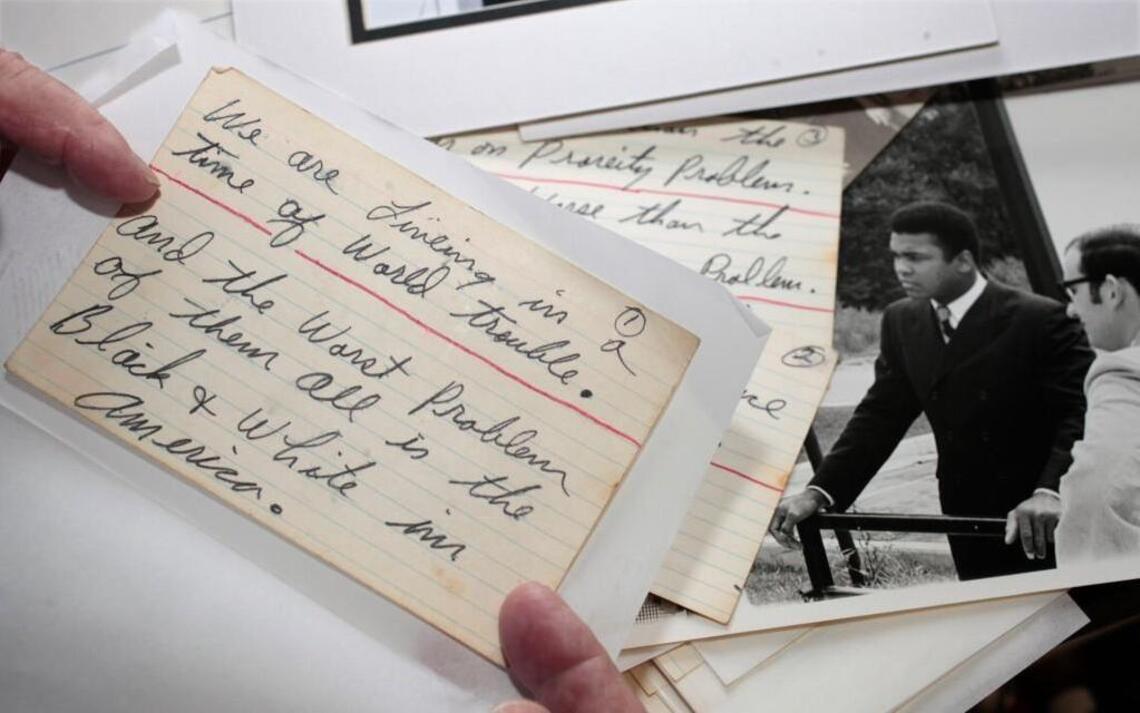 ①
We are Liveing in a
time of World trouble.
and the Worst Problem
of them all is the
Black & White in
america.
③
the
on Prorcity Problems.
than the
Problem.
②